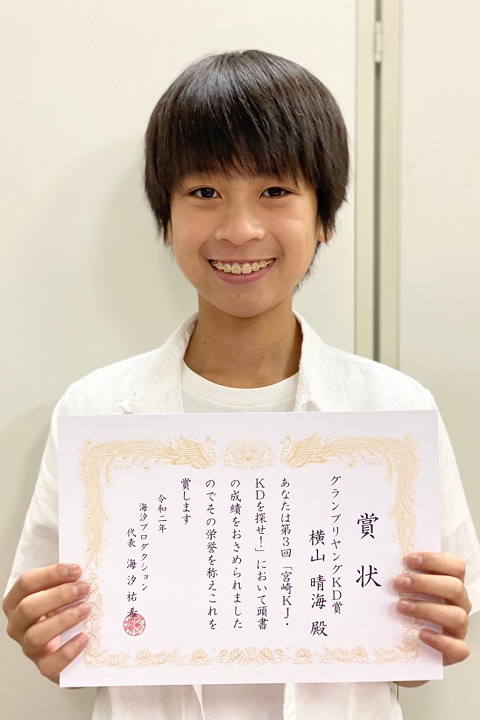 賞状
グランプリヤングKD賞
横山 晴海 殿
あなたは第3回「宮崎KJ・
KDを探せ!」において頭書
の成績をおさめられました
のでその栄誉を称えこれを
賞します
令和二年
海汐プロダクション
代表 海汐祐